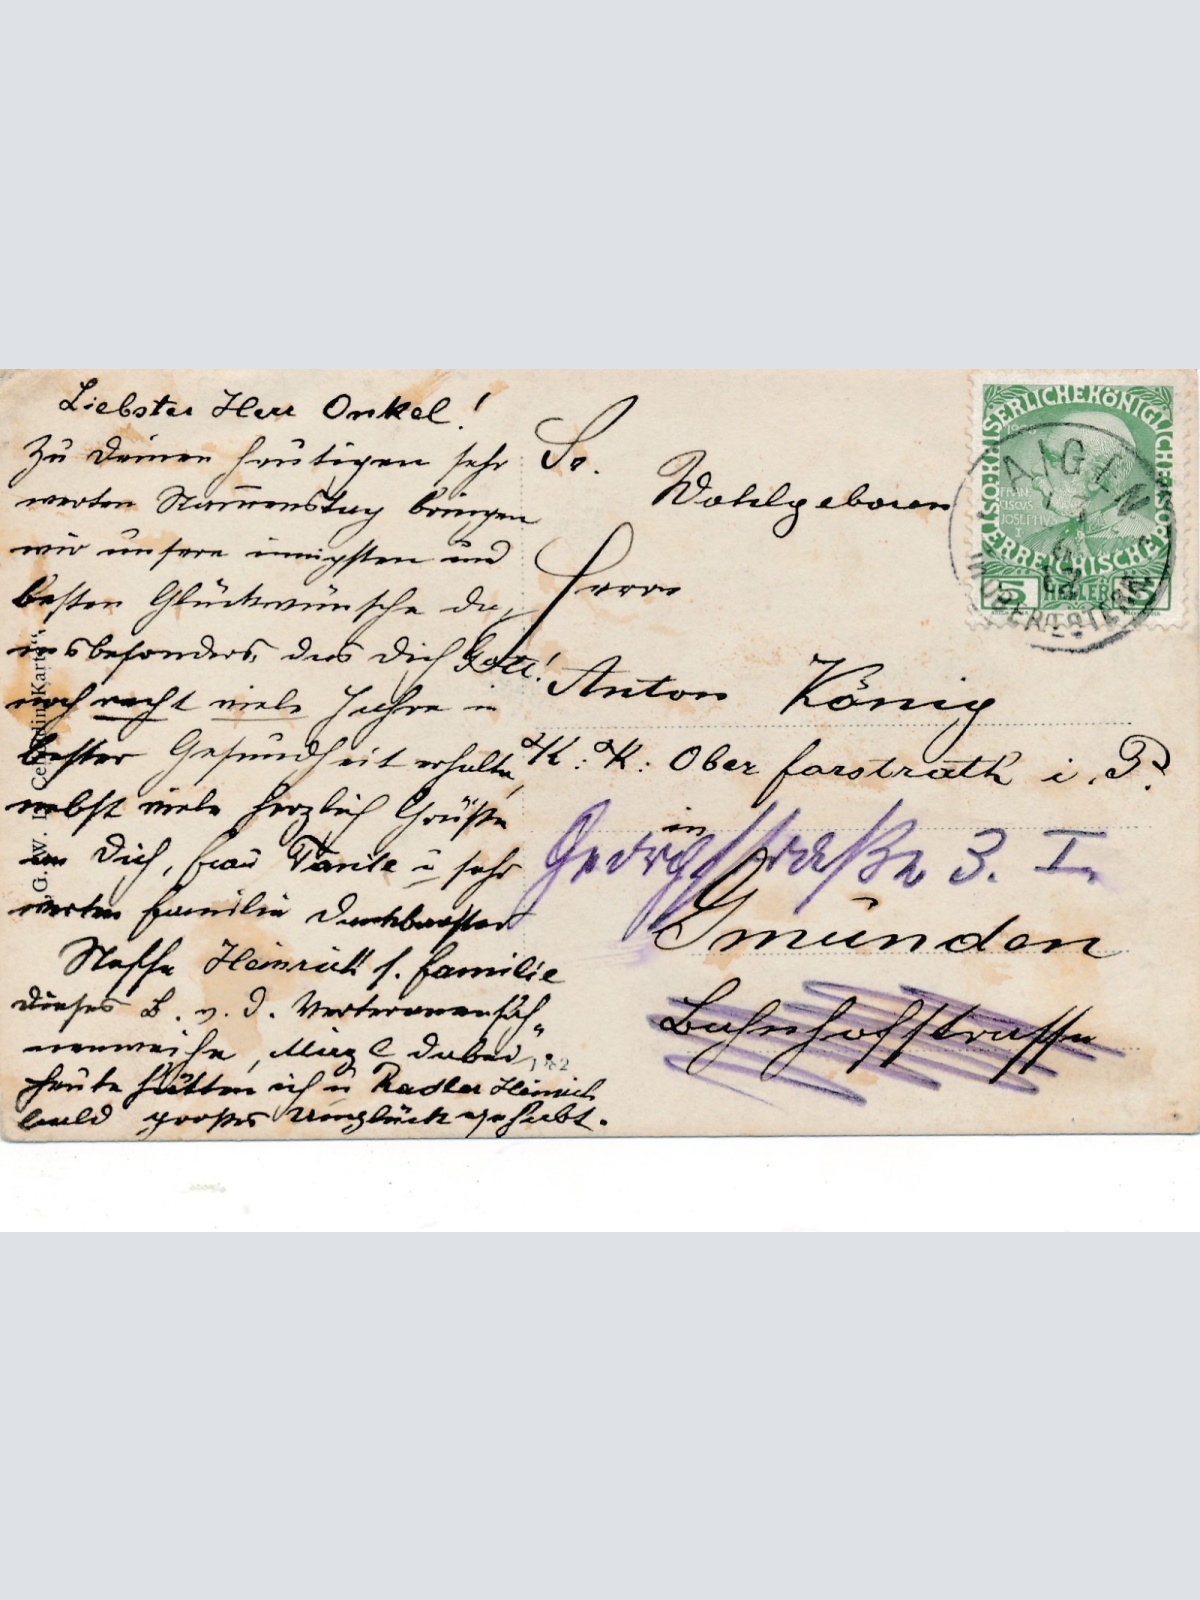 Liebster Herr Onkel!
Zu Deinem heutigen sehr
werten Namenstag bringen
wir unsere innigsten und
besten Glückwünsche da,
insbesonders, das Dich Gott!
noch recht viele Jahre in
bester Gesundheit erhalte,
nebst viele herzlich Grüße
an Dich, Frau Tante u sehr
werten Familie Dankbarster
Neffe Heinrich s. Familie
Dieses B. v. d.
dabei".
heute hätten ich u Radler Heinrich
bald großes Unglück gehabt.
G. W. I.
182
Sr.
Wohlgeboren
Herrn
Anton König
K: K: Oberforstrath i. P.
in
Georgstraße 3. I.
Gmünden
Bahnhofstrasse
KAISERLICHE KÖNIGLICHE
ÖSTERREICHISCHE POST
FRAN
CISCUS
JOSEPHUS
I
5 HELLER 5
AIGEN